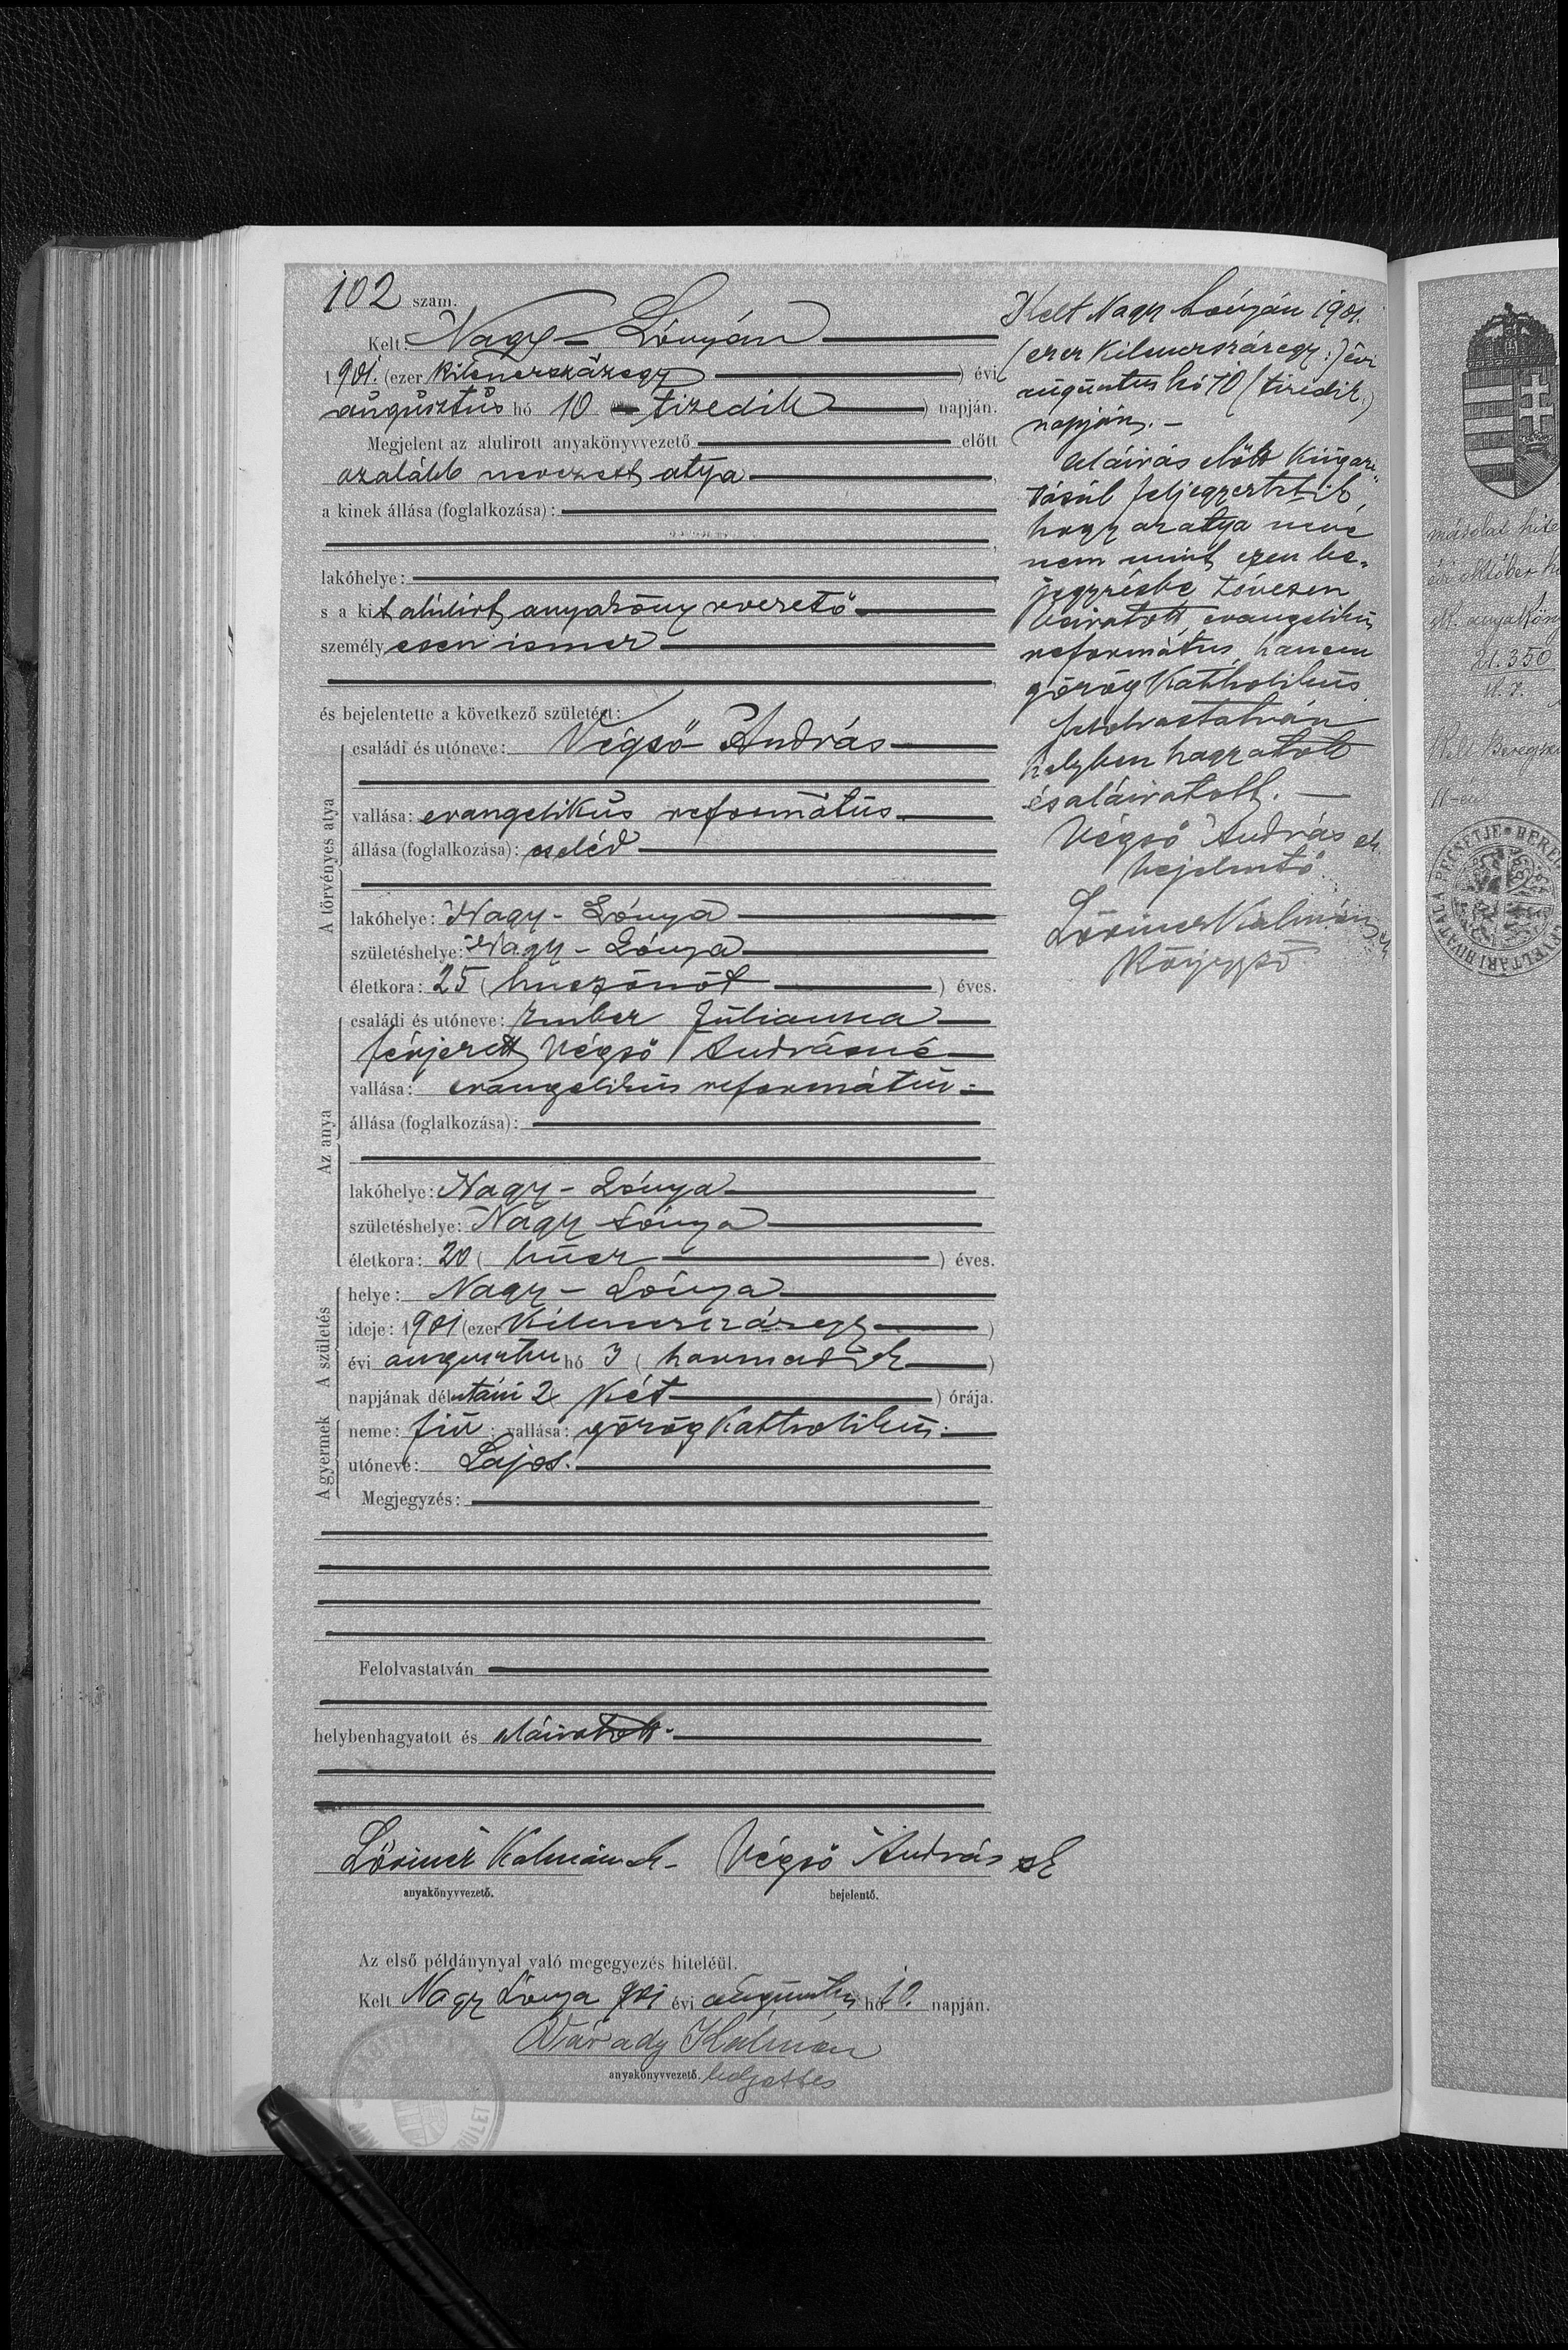 102 szám.
Kelt: Nagy-Lónyán
1901. (ezer kilenczszázegy) évi
augusztus hó 10 tizedik) napján.
Megjelent az alulirott anyakönyvvezető előtt
azalább nevezett atya,
a kinek állása (foglalkozása):
lakóhelye:
s a kit alulirt anyakönyvvezető
személyesen ismer
és bejelentette a következő születést:
A törvényes atya
családi és utóneve: Végső András
vallása: evangelikus református
állása (foglalkozása): cseléd
lakóhelye: Nagy-Lónya
születéshelye: Nagy-Lónya
életkora: 25 (huszonöt) éves.
Az anya
családi és utóneve: Ember Julianna
férjezett Végső Andrásné
vallása: evangelikus református
állása (foglalkozása):
lakóhelye: Nagy-Lónya
születéshelye: Nagy Lónya
életkora: 20 (husz) éves.
A születés
helye: Nagy-Lónya
ideje: 1901 (ezer kilenczszázegy)
évi augusztus hó 3 (harmadik)
napjának délutáni 2 két) órája.
A gyermek
neme: fiu; vallása: görög katholikus.
utóneve: Lajos.
Megjegyzés:
Felolvastatván
helybenhagyatott és aláiratott.
Lőrincz Kálmán sk. Végső András sk
anyakönyvvezető. bejelentő.
Az első példánynyal való megegyezés hiteléül.
Kelt Nagy Lónya 901 évi augusztus hó 10. napján.
Várady Kálmán
anyakönyvvezető. helyettes
Kelt Nagy Lónyán 1901.
(ezer kilenczszázegy:) évi
augusztus hó 10 (tizedik.)
napján. –
Aláirás előtt kiigazi-
tásul feljegyeztetik,
hogy az atya neve
nem mint ezen be-
jegyzésbe tévesen
beiratott evangelikus
református, hanem
görög katholikus
felolvastatván
helyben hagyatott
és aláiratott. –
Végső András sk.
bejelentő
Lőrincz Kálmán sk
Körjegyző
másolat hite
évi október h
M. anyaköny
21.350
Beregsz
11-én
PECSÉTJE * BEREG
LEVÉLTÁRI HIVATALA